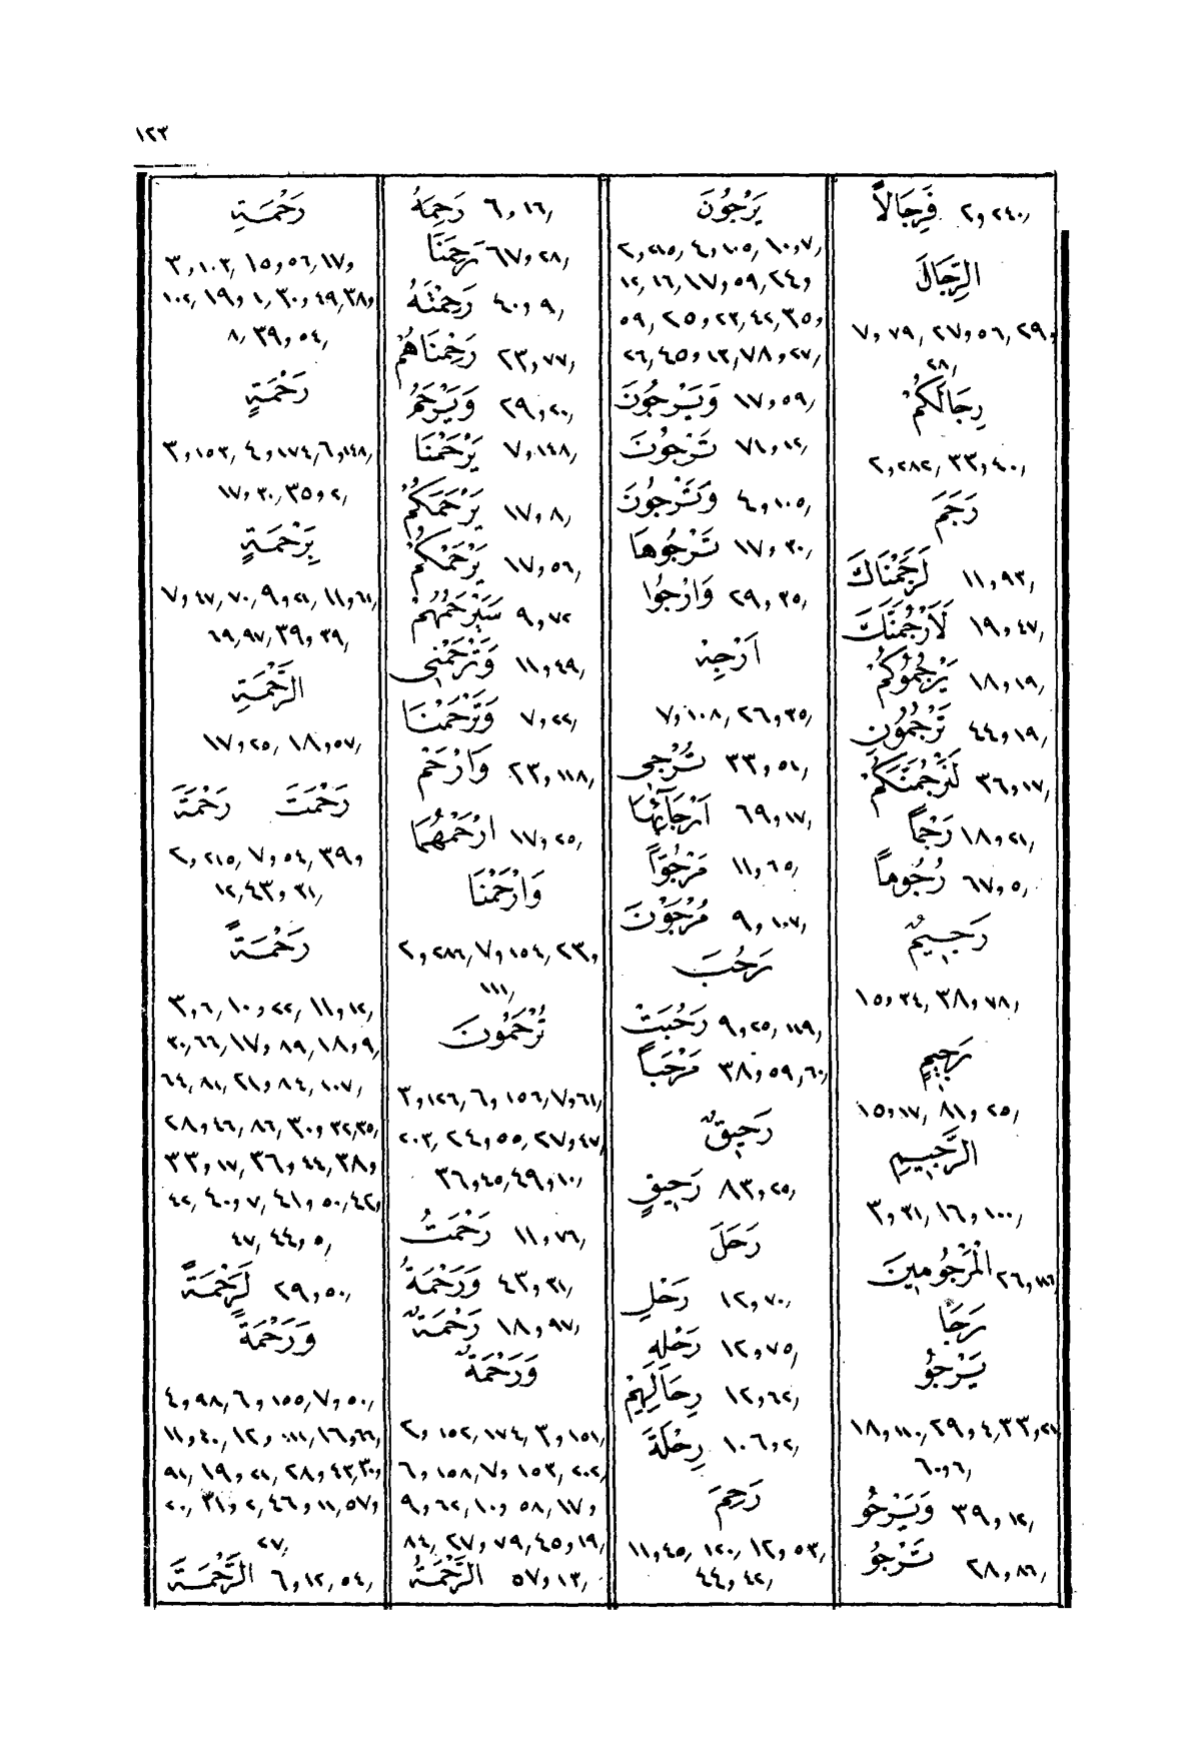 ١٢٣
فَرِجَالاً ٢و٢٤٠,
الرِّجَالَ
٧و٧٩, ٢٧و٥٦, ٢٩و
٢٨,
رِجَالَكُمْ
٢و٢٨٢, ٣٣و٤٠,
رَجَمَ
لَرَجَمْنَاكَ ١١و٩٣,
لَأَرْجُمَنَّكَ ١٩و٤٧,
يَرْجُمُوكُمْ ١٨و١٩,
تَرْجُمُونِ ٤٤و١٩,
لَنَرْجُمَنَّكُمْ ٣٦و١٧,
رَجْماً ١٨و٢١,
رُجُوماً ٦٧و٥,
رَجِيمٌ
١٥و٣٤, ٣٨و٧٨,
رَجِيمٍ
١٥و١٧, ٨١و٢٥,
الرَّجِيمِ
٣و٣١, ١٦و١٠٠,
الْمَرْجُومِينَ ٢٦و١١٦,
رَجَا
يَرْجُو
١٨و١١٠, ٢٩و٤, ٣٣و٢١,
٦٠و٦,
وَيَرْجُو ٣٩و١٢,
تَرْجُو ٢٨و٨٦,
يَرْجُونَ
٢و٢١٥, ٤و١٠٥, ١٠و٧,
١٢, ١٦, ١٧و٥٩, ٢٤و
٥٩, ٢٥و٢٣, ٤٢, ٣٥و
٢٦, ٤٥و١٣, ٧٨و٢٧,
وَيَرْجُونَ ١٧و٥٩,
تَرْجُونَ ٧١و١٢,
وَتَرْجُونَ ٤و١٠٥,
تَرْجُوهَا ١٧و٣٠,
وَارْجُوا ٢٩و٣٥,
أَرْجِهْ
٧و١٠٨, ٢٦و٣٥,
تُرْجِي ٣٣و٥١,
أَرْجَآئِهَا ٦٩و١٧,
مَرْجُوّاً ١١و٦٥,
مُرْجَوْنَ ٩و١٠٧,
رَحُبَ
رَحُبَتْ ٩و٢٥, ١١٩,
مَرْحَباً ٣٨و٥٩, ٦٠,
رَحِيقٌ
رَحِيقٍ ٨٣و٢٥,
رَحَلَ
رَحْلِ ١٢و٧٠,
رَحْلِهِ ١٢و٧٥,
رِحَالِهِمْ ١٢و٦٢,
رِحْلَةَ ١٠٦و٢,
رَحِمَ
١١و٤٥, ١٢٠, ١٢و٥٣,
٤٤و٤٢,
رَحِمَهُ ٦و١٦,
رَحِمَنَا ٦٧و٢٨,
رَحِمْتَهُ ٤٠و٩,
رَحِمْنَاهُمْ ٢٣و٧٧,
وَيَرْحَمُ ٢٩و٢٠,
يَرْحَمْنَا ٧و١٤٨,
يَرْحَمَكُمْ ١٧و٨,
يَرْحَمْكُمْ ١٧و٥٦,
سَيَرْحَمُهُمْ ٩و٧٢,
وَتَرْحَمْنِي ١١و٤٩,
وَتَرْحَمْنَا ٧و٢٢,
وَارْحَمْ ٢٣و١١٨,
ارْحَمْهُمَا ١٧و٢٥,
وَارْحَمْنَا
٢و٢٨٦, ٧و١٥٤, ٢٣و
١١١,
تُرْحَمُونَ
٣و١٢٦, ٦و١٥٦, ٧و٦١,
٢٠٣, ٢٤و٥٥, ٢٧و٤٧,
٣٦و٤٥, ٤٩و١٠,
رَحْمَتُ ١١و٧٦,
وَرَحْمَةُ ٤٣و٣١,
رَحْمَةٌ ١٨و٩٧,
وَرَحْمَةٌ
٢و١٥٢, ١٧٤, ٣و١٥١,
٦و١٥٨, ٧و١٥٣, ٢٠٢,
٩و٦٢, ١٠و٥٨, ١٧و
٨٤, ٢٧و٧٩, ٤٥و١٩,
الرَّحْمَةُ ٥٧و١٣,
رَحْمَةِ
٣و١٠٣, ١٥و٥٦, ١٧و
١٠٢, ١٩و١, ٣٠و٤٩, ٣٨و
٨, ٣٩و٥٤,
رَحْمَةٍ
٣و١٥٣, ٤و١٧٤, ٦و١٤٨,
١٧و٣٠, ٣٥و٢,
بِرَحْمَةٍ
٧و٤٧, ٧٠, ٩و٢١, ١١و٦١,
٦٩, ٩٧, ٣٩و٣٩,
الرَّحْمَةِ
١٧و٢٥, ١٨و٥٧,
رَحْمَتَ رَحْمَةَ
٢و٢١٥, ٧و٥٤, ٣٩و
١٢, ٤٣و٣١,
رَحْمَةً
٣و٦, ١٠و٢٢, ١١و١٢,
٣٠, ٦٦, ١٧و٨٩, ١٨و٩,
٦٤, ٨١, ٢١و٨٤, ١٠٧,
٢٨و٤٦, ٨٦, ٣٠و٣٢, ٣٥,
٣٣و١٧, ٣٦و٤٤, ٣٨و
٤٢, ٤٠و٧, ٤١و٥٠, ٤٢و
٤٧, ٤٤و٥,
لَرَحْمَةً ٢٩و٥٠,
وَرَحْمَةً
٤و٩٨, ٦و١٥٥, ٧و٥٠,
١١و٤٠, ١٢و١١١, ١٦و٦٦,
٩١, ١٩و٢١, ٢٨و٤٣, ٣٠و
٢٠, ٣١و٢, ٤٦و١١, ٥٧و
٢٧,
الرَّحْمَةَ ٦و١٢, ٥٤,